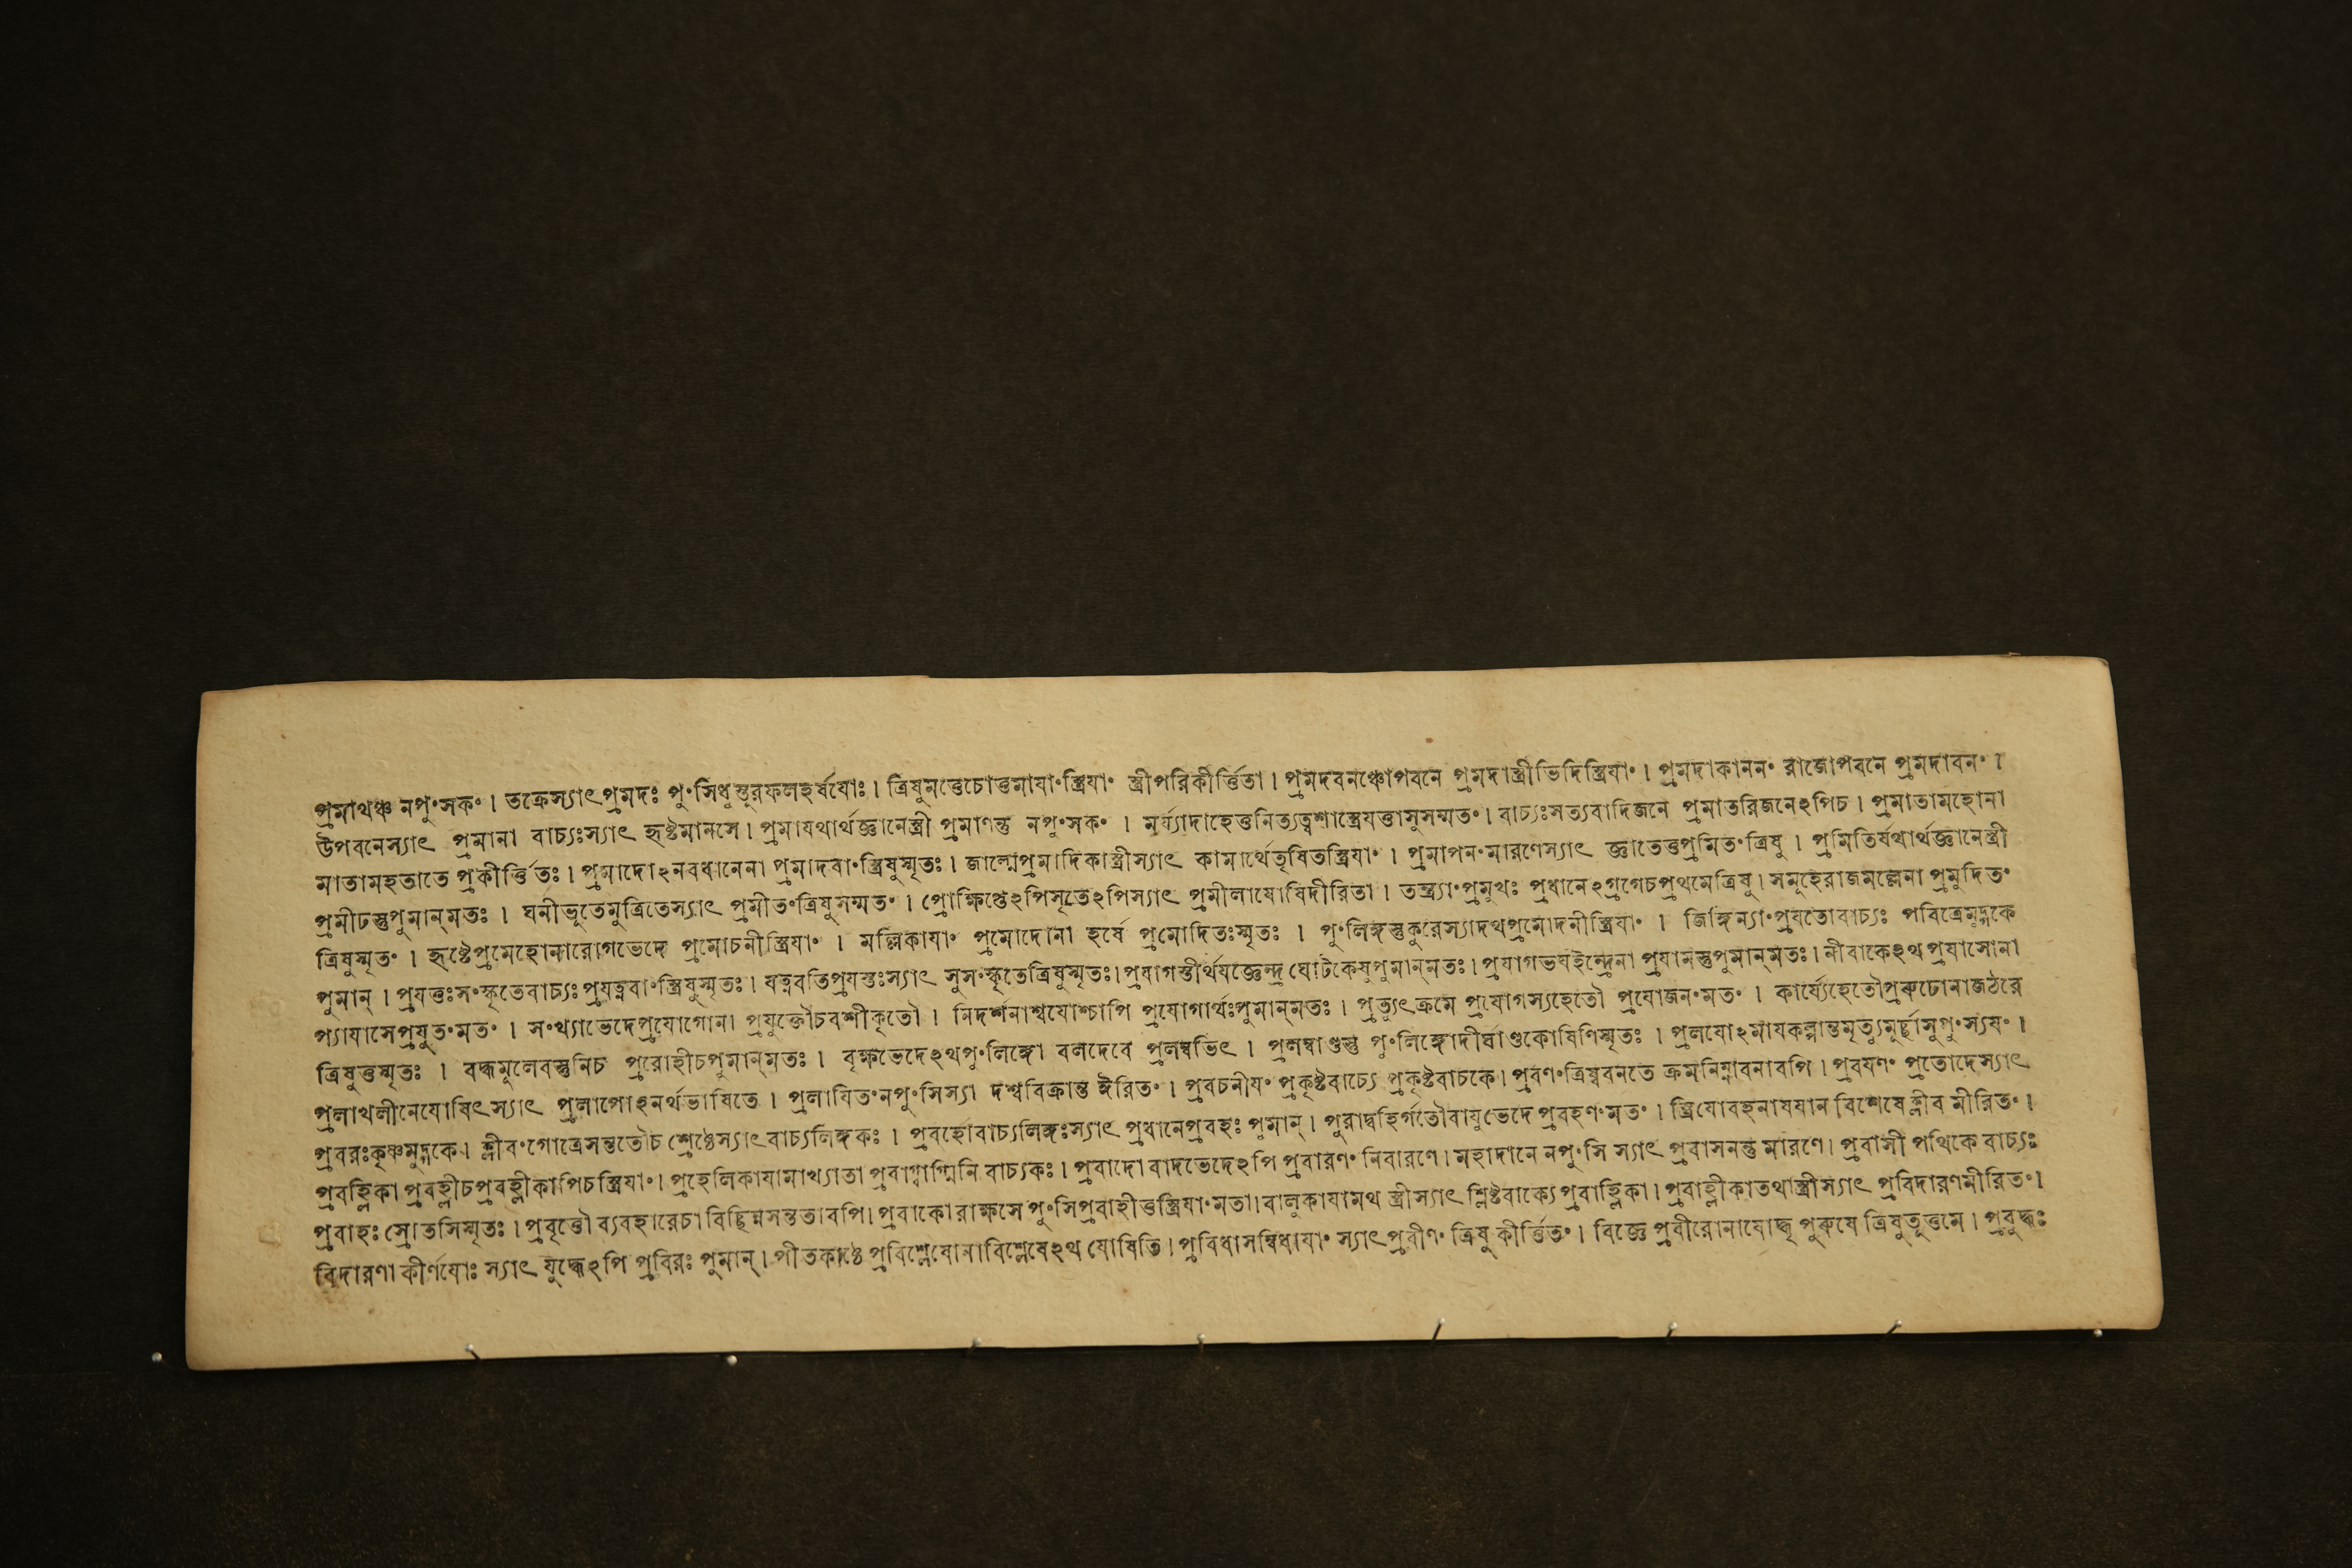 প্রমাথঞ্চ নপুংসকং । তক্রেস্যাৎপ্রমদঃ পুংসিধুস্তূরফলহর্ষযোঃ । ত্রিষুমত্তেচোত্তমাযাংস্ত্রিযাং স্ত্রীপরিকীর্ত্তিতা । প্রমদবনঞ্চোপবনে প্রমদাস্ত্রীভিদিস্ত্রিযাং । প্রমদাকাননং রাজোপবনে প্রমদাবনং ।
উপবনেস্যাৎ প্রমানা বাচ্যঃস্যাৎ হৃষ্টমানসে । প্রমাযথার্থজ্ঞানেস্ত্রী প্রমাণন্তু নপুংসকং । মর্য্যাদাহেত্তনিত্যত্বশাস্ত্রেযত্তাসুসম্মতং । বাচ্যঃসত্যবাদিজনে প্রমাতরিজনেঽপিচ । প্রমাতামহোনা
মাতামহতাতে প্রকীর্ত্তিতঃ । প্রমাদোঽনবধানেনা প্রমাদবাংস্ত্রিষুস্মৃতঃ । জাল্মেপ্রমাদিকাস্ত্রীস্যাৎ কামার্থেতৃষিতস্ত্রিযাং । প্রমাপনংমারণেস্যাৎ জ্ঞাতেত্তপ্রমিতংত্রিষু । প্রমিতির্যথার্থজ্ঞানেস্ত্রী
প্রমীঢস্তুপুমান্‌মতঃ । ঘনীভূতেমুত্রিতেস্যাৎ প্রমীতংত্রিষুসম্মতং । প্রোক্ষিপ্তেঽপিসৃতেঽপিস্যাৎ প্রমীলাযোষিদীরিতা । তন্ত্র্যাংপ্রমুথঃ প্রধানেঽগ্রগেচপ্রথমেত্রিষু । সমূহেরাজমল্লেনা প্রমুদিতং
ত্রিষুস্মৃতং । হৃষ্টেপ্রমেহোনারোগভেদে প্রমোচনীস্ত্রিযাং । মল্লিকাযাং প্রমোদোনা হর্ষে প্রমোদিতঃস্মৃতঃ । পুংলিঙ্গস্তুকুরেস্যাদথপ্রমোদনীস্ত্রিযাং । জিঙ্গিন্যাংপ্রযতোবাচ্যঃ পবিত্রেমুদ্গকে
পুমান্ । প্রযত্তঃসংস্কৃতেবাচ্যঃপ্রযত্নবাংস্ত্রিষুস্মৃতঃ । যত্নবতিপ্রযস্তঃস্যাৎ সুসংস্কৃতেত্রিষুস্মৃতঃ । প্রযাগস্তীর্থযজ্ঞেন্দ্র ঘোটকেষুপুমান্‌মতঃ । প্রযাগভযইন্দ্রেনা প্রযামস্তুপুমান্‌মতঃ । নীবাকেঽথপ্রযাসোনা
প্যাযাসেপ্রযুতংমতং । সংখ্যাভেদেপ্রযোগোনা প্রযুক্তৌচবশীকৃতৌ । নিদর্শনাশ্বযোশ্চাপি প্রযোগার্থঃপুমান্‌মতঃ । প্রত্যুৎক্রমে প্রযোগস্যহেতৌ প্রযোজনংমতং । কার্য্যেহেতৌপ্ররুঢোনাজঠরে
ত্রিষুত্তস্মৃতঃ । বদ্ধমুলেবস্তুনিচ প্ররোহীচপুমান্‌মতঃ । বৃক্ষভেদেঽথপুংলিঙ্গো বলদেবে প্রলম্বভিৎ । প্রলম্বাণ্ডস্তু পুংলিঙ্গোদীর্ঘাণ্ডকোষিণিস্মৃতঃ । প্রলযোঽমাযকল্পান্তমৃত্যুমুর্চ্ছাসুপুংস্যযং ।
প্রলাখলীনেযোষিৎস্যাৎ প্রলাপোঽনর্থভাষিতে । প্রলাযিতংনপুংসিস্যা দশ্ববিক্রান্ত ঈরিতং । প্রবচনীযং প্রকৃষ্টবাচ্যে প্রকৃষ্টবাচকে । প্রবণংত্রিষ্ববনতে ক্রমনিম্নাবনাবপি । প্রবযণং প্রতোদেস্যাৎ
প্রবরঃকৃষ্ণমুদ্গকে । ক্লীবংগোত্রেসন্ততৌচ শ্রেষ্ঠেস্যাৎবাচ্যলিঙ্গকঃ । প্রবর্হোবাচ্যলিঙ্গঃস্যাৎ প্রধানেপ্রবহঃ পুমান্ । পুরাদ্বহির্গতৌবাযুভেদে প্রবহণংমতং । স্ত্রিযোবহনাযযান বিশেষে ক্লীব মীরিতং ।
প্রবহ্লিকা প্রবহ্লীচপ্রবহ্লীকাপিচস্ত্রিযাং । প্রহেলিকাযামাখ্যাতা প্রবাগ্বাগ্মিনি বাচ্যকঃ । প্রবাদো বাদভেদেঽপি প্রবারণং নিবারণে । মহাদানে নপুংসি স্যাৎ প্রবাসনন্তু মারণে । প্রবাসী পথিকে বাচ্যঃ
প্রবাহঃ স্রোতসিস্মৃতঃ । প্রবৃত্তৌ ব্যবহারেচা বিচ্ছিন্নসন্ততাবপি । প্রবাকোরাক্ষসে পুংসিপ্রবাহীত্তস্ত্রিযাংমতা । বালুকাযামথ স্ত্রীস্যাৎ শ্লিষ্টবাক্যেপ্রবাহ্লিকা । প্রবাহ্লীকাতথাস্ত্রীস্যাৎ প্রবিদারণমীরিতং ।
বিদারণাকীর্ণযোঃ স্যাৎ যুদ্ধেঽপি প্রবিরঃ পুমান্ । পীতকাষ্ঠে প্রবিশ্লেষোনাবিশ্লেষেঽথ যোষিতি । প্রবিধাসম্বিধাযাং স্যাৎপ্রবীণং ত্রিষু কীর্ত্তিতং । বিজ্ঞে প্রবীরোনাযোদ্ধৃ পুরুষে ত্রিষুতূত্তমে । প্রবুদ্ধঃ